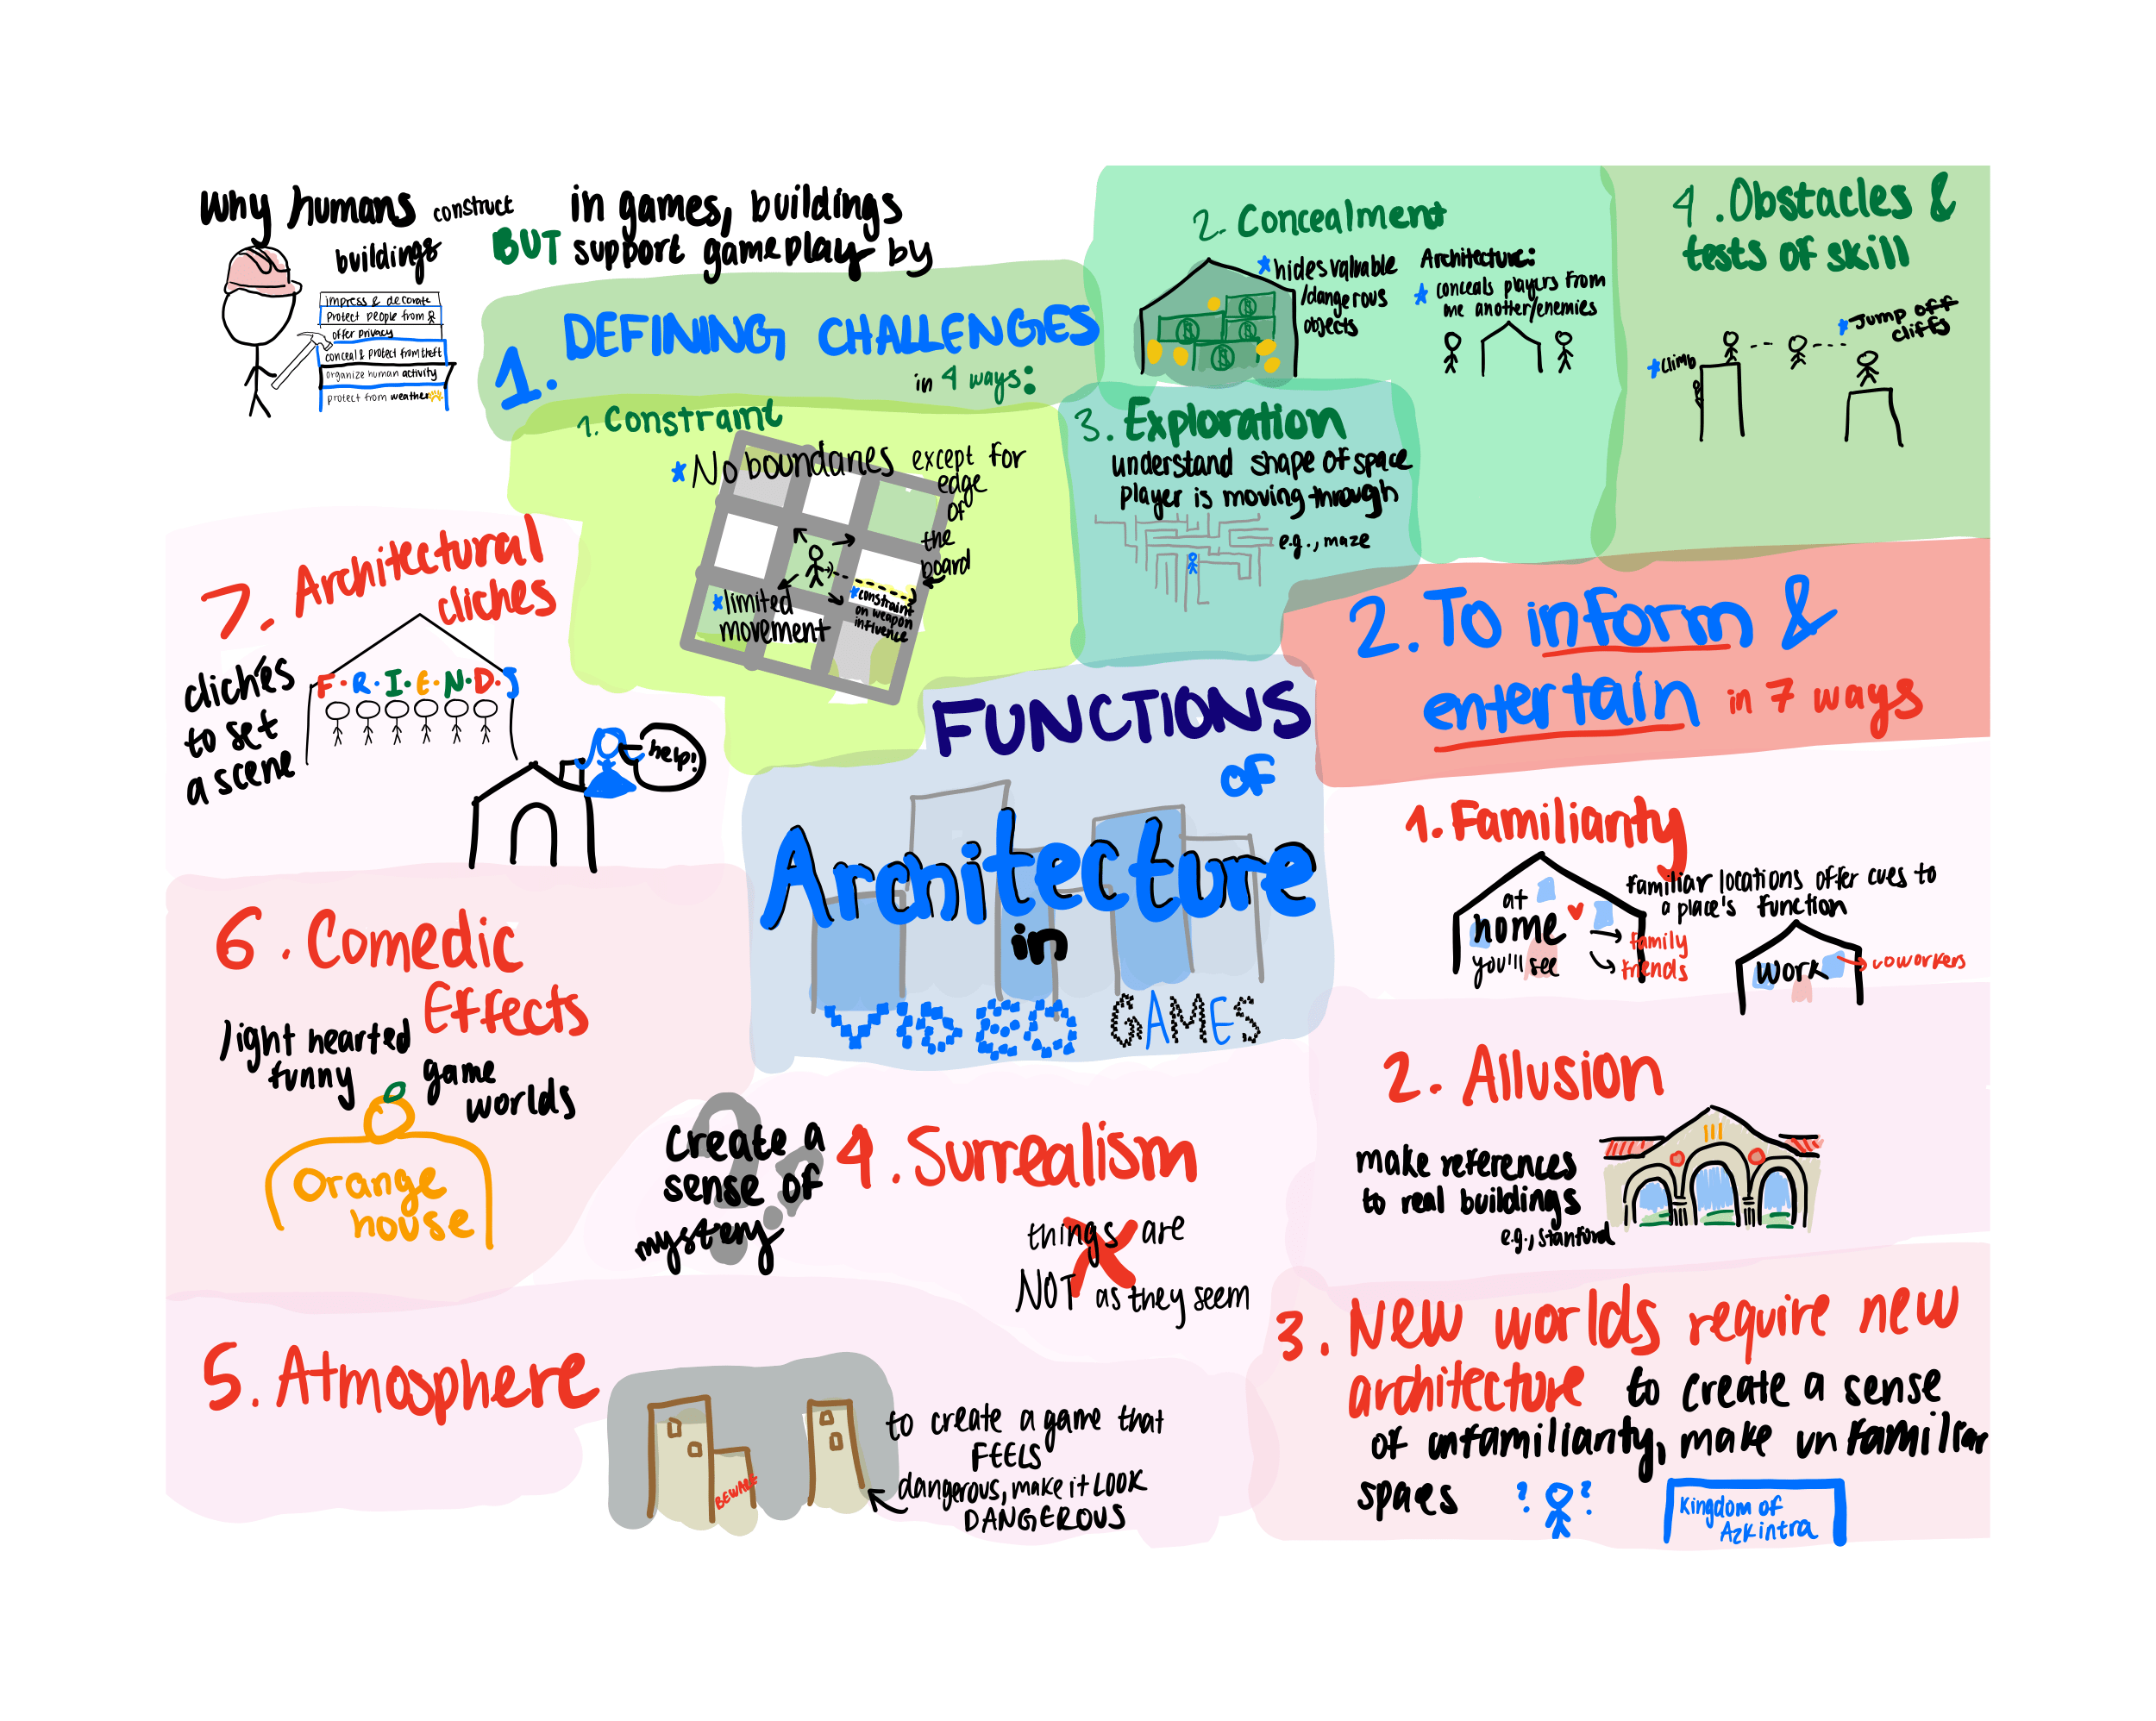 Why humans construct
buildings
impress & decorate
Protect people from
offer privacy
conceal & protect from theft
organize human activity
protect from weather
in games, buildings
BUT support gameplay by
1. DEFINING CHALLENGES
in 4 ways:
1. Constraint
* No boundaries except for
edge
of
the
board
* limited
movement
* constraint
on weapon
influence
2. Concealment
* hides valuable
/dangerous
objects
Architecture:
* conceals players from
one another/enemies
3. Exploration
understand shape of space
player is moving through
e.g., maze
4. Obstacles &
tests of skill
* climb
* Jump off
cliffs
FUNCTIONS
of
Architecture
in
VIDEO GAMES
2. To inform &
entertain in 7 ways
1. Familiarity
at
home
you'll see
family
friends
familiar locations offer cues to
a place's function
work
coworkers
2. Allusion
make references
to real buildings
e.g., stanford
3. New worlds require new
architecture to create a sense
of unfamiliarity, make unfamiliar
spaes
? ?
Kingdom of
Azkintra
4. Surrealism
Create a
sense of
mystery
things are
NOT as they seem
5. Atmosphere
BEWARE
to create a game that
FEELS
dangerous, make it LOOK
DANGEROUS
6. Comedic
Effects
light hearted
funny game
worlds
Orange
house
7. Architectural
cliches
clichés
to set
a scene
F·R·I·E·N·D·S
help!